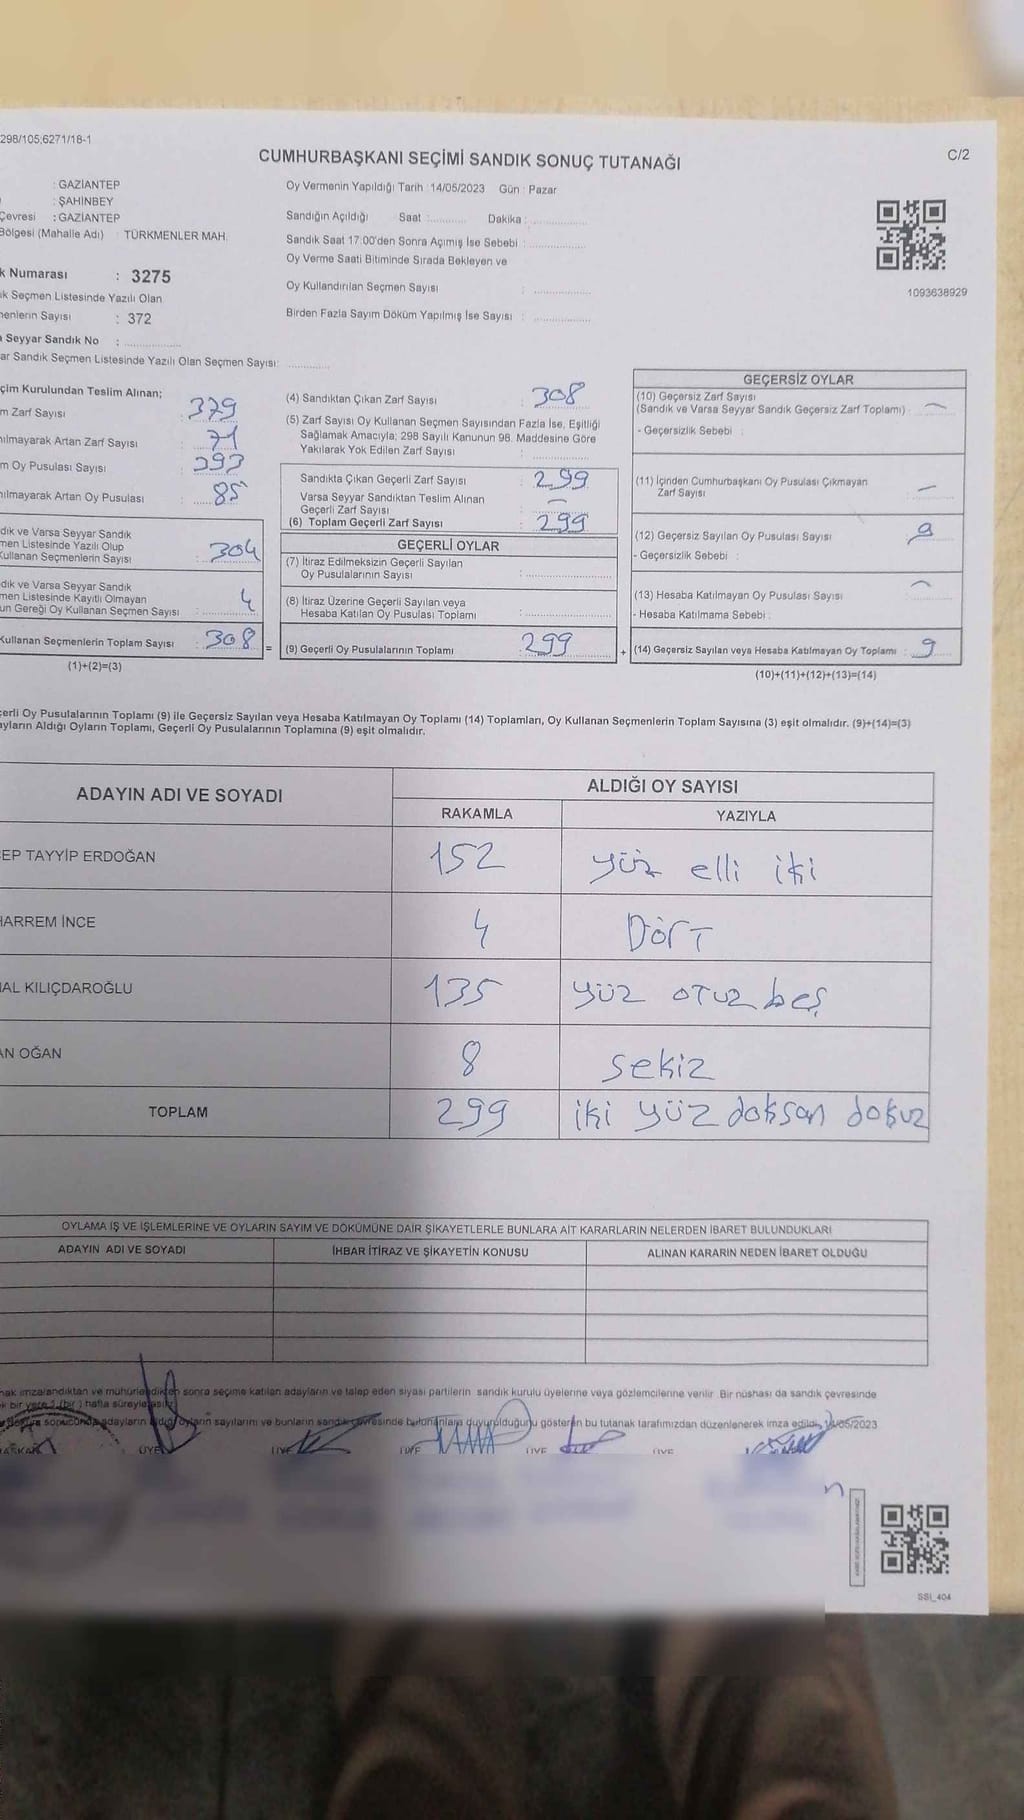 298/105;6271/18-1
CUMHURBAŞKANI SEÇİMİ SANDIK SONUÇ TUTANAĞI
C/2
: GAZİANTEP
: ŞAHİNBEY
Çevresi : GAZİANTEP
Bölgesi (Mahalle Adı) : TÜRKMENLER MAH.
k Numarası : 3275
ık Seçmen Listesinde Yazılı Olan
menlerin Sayısı : 372
a Seyyar Sandık No :
ar Sandık Seçmen Listesinde Yazılı Olan Seçmen Sayısı:
Oy Vermenin Yapıldığı Tarih : 14/05/2023 Gün : Pazar
Sandığın Açıldığı Saat : Dakika :
Sandık Saat 17:00'den Sonra Açımış İse Sebebi :
Oy Verme Saati Bitiminde Sırada Bekleyen ve
Oy Kullandırılan Seçmen Sayısı :
Birden Fazla Sayım Döküm Yapılmış İse Sayısı :
1093638929
çim Kurulundan Teslim Alınan;
m Zarf Sayısı : 379
nılmayarak Artan Zarf Sayısı : 71
m Oy Pusulası Sayısı : 393
nılmayarak Artan Oy Pusulası : 85
dık ve Varsa Seyyar Sandık
men Listesinde Yazılı Olup
Kullanan Seçmenlerin Sayısı : 304
dık ve Varsa Seyyar Sandık
men Listesinde Kayıtlı Olmayan
un Gereği Oy Kullanan Seçmen Sayısı : 4
Kullanan Seçmenlerin Toplam Sayısı : 308
(1)+(2)=(3)
(4) Sandıktan Çıkan Zarf Sayısı : 308
(5) Zarf Sayısı Oy Kullanan Seçmen Sayısından Fazla İse, Eşitliği
Sağlamak Amacıyla; 298 Sayılı Kanunun 98. Maddesine Göre
Yakılarak Yok Edilen Zarf Sayısı :
Sandıkta Çıkan Geçerli Zarf Sayısı : 299
Varsa Seyyar Sandıktan Teslim Alınan
Geçerli Zarf Sayısı : –
(6) Toplam Geçerli Zarf Sayısı : 299
GEÇERLİ OYLAR
(7) İtiraz Edilmeksizin Geçerli Sayılan
Oy Pusulalarının Sayısı :
(8) İtiraz Üzerine Geçerli Sayılan veya
Hesaba Katılan Oy Pusulası Toplamı :
= (9) Geçerli Oy Pusulalarının Toplamı : 299
GEÇERSİZ OYLAR
(10) Geçersiz Zarf Sayısı
(Sandık ve Varsa Seyyar Sandık Geçersiz Zarf Toplamı) : –
- Geçersizlik Sebebi :
(11) İçinden Cumhurbaşkanı Oy Pusulası Çıkmayan
Zarf Sayısı : –
(12) Geçersiz Sayılan Oy Pusulası Sayısı : 9
- Geçersizlik Sebebi :
(13) Hesaba Katılmayan Oy Pusulası Sayısı : –
- Hesaba Katılmama Sebebi :
+ (14) Geçersiz Sayılan veya Hesaba Katılmayan Oy Toplamı : 9
(10)+(11)+(12)+(13)=(14)
çerli Oy Pusulalarının Toplamı (9) ile Geçersiz Sayılan veya Hesaba Katılmayan Oy Toplamı (14) Toplamları, Oy Kullanan Seçmenlerin Toplam Sayısına (3) eşit olmalıdır. (9)+(14)=(3)
ayların Aldığı Oyların Toplamı, Geçerli Oy Pusulalarının Toplamına (9) eşit olmalıdır.
ADAYIN ADI VE SOYADI
ALDIĞI OY SAYISI
RAKAMLA YAZIYLA
EP TAYYİP ERDOĞAN 152 yüz elli iki
HARREM İNCE 4 Dört
AL KILIÇDAROĞLU 135 yüz otuz beş
AN OĞAN 8 sekiz
TOPLAM 299 iki yüz doksan dokuz
OYLAMA İŞ VE İŞLEMLERİNE VE OYLARIN SAYIM VE DÖKÜMÜNE DAİR ŞİKAYETLERLE BUNLARA AİT KARARLARIN NELERDEN İBARET BULUNDUKLARI
ADAYIN ADI VE SOYADI İHBAR İTİRAZ VE ŞİKAYETİN KONUSU ALINAN KARARIN NEDEN İBARET OLDUĞU
nak imzalandıktan ve mühürlendikten sonra seçime katılan adayların ve talep eden siyasi partilerin sandık kurulu üyelerine veya gözlemcilerine verilir. Bir nüshası da sandık çevresinde
k bir yere 1 (bir) hafta süreyle asılır.
sonucunda adayların aldığı oyların sayılarını ve bunların sandık çevresinde bulunanlara duyurulduğunu gösteren bu tutanak tarafımızdan düzenlenerek imza edildi. 14/05/2023
BAŞKAN ÜYE ÜYE ÜYE ÜYE ÜYE
SSİ_404